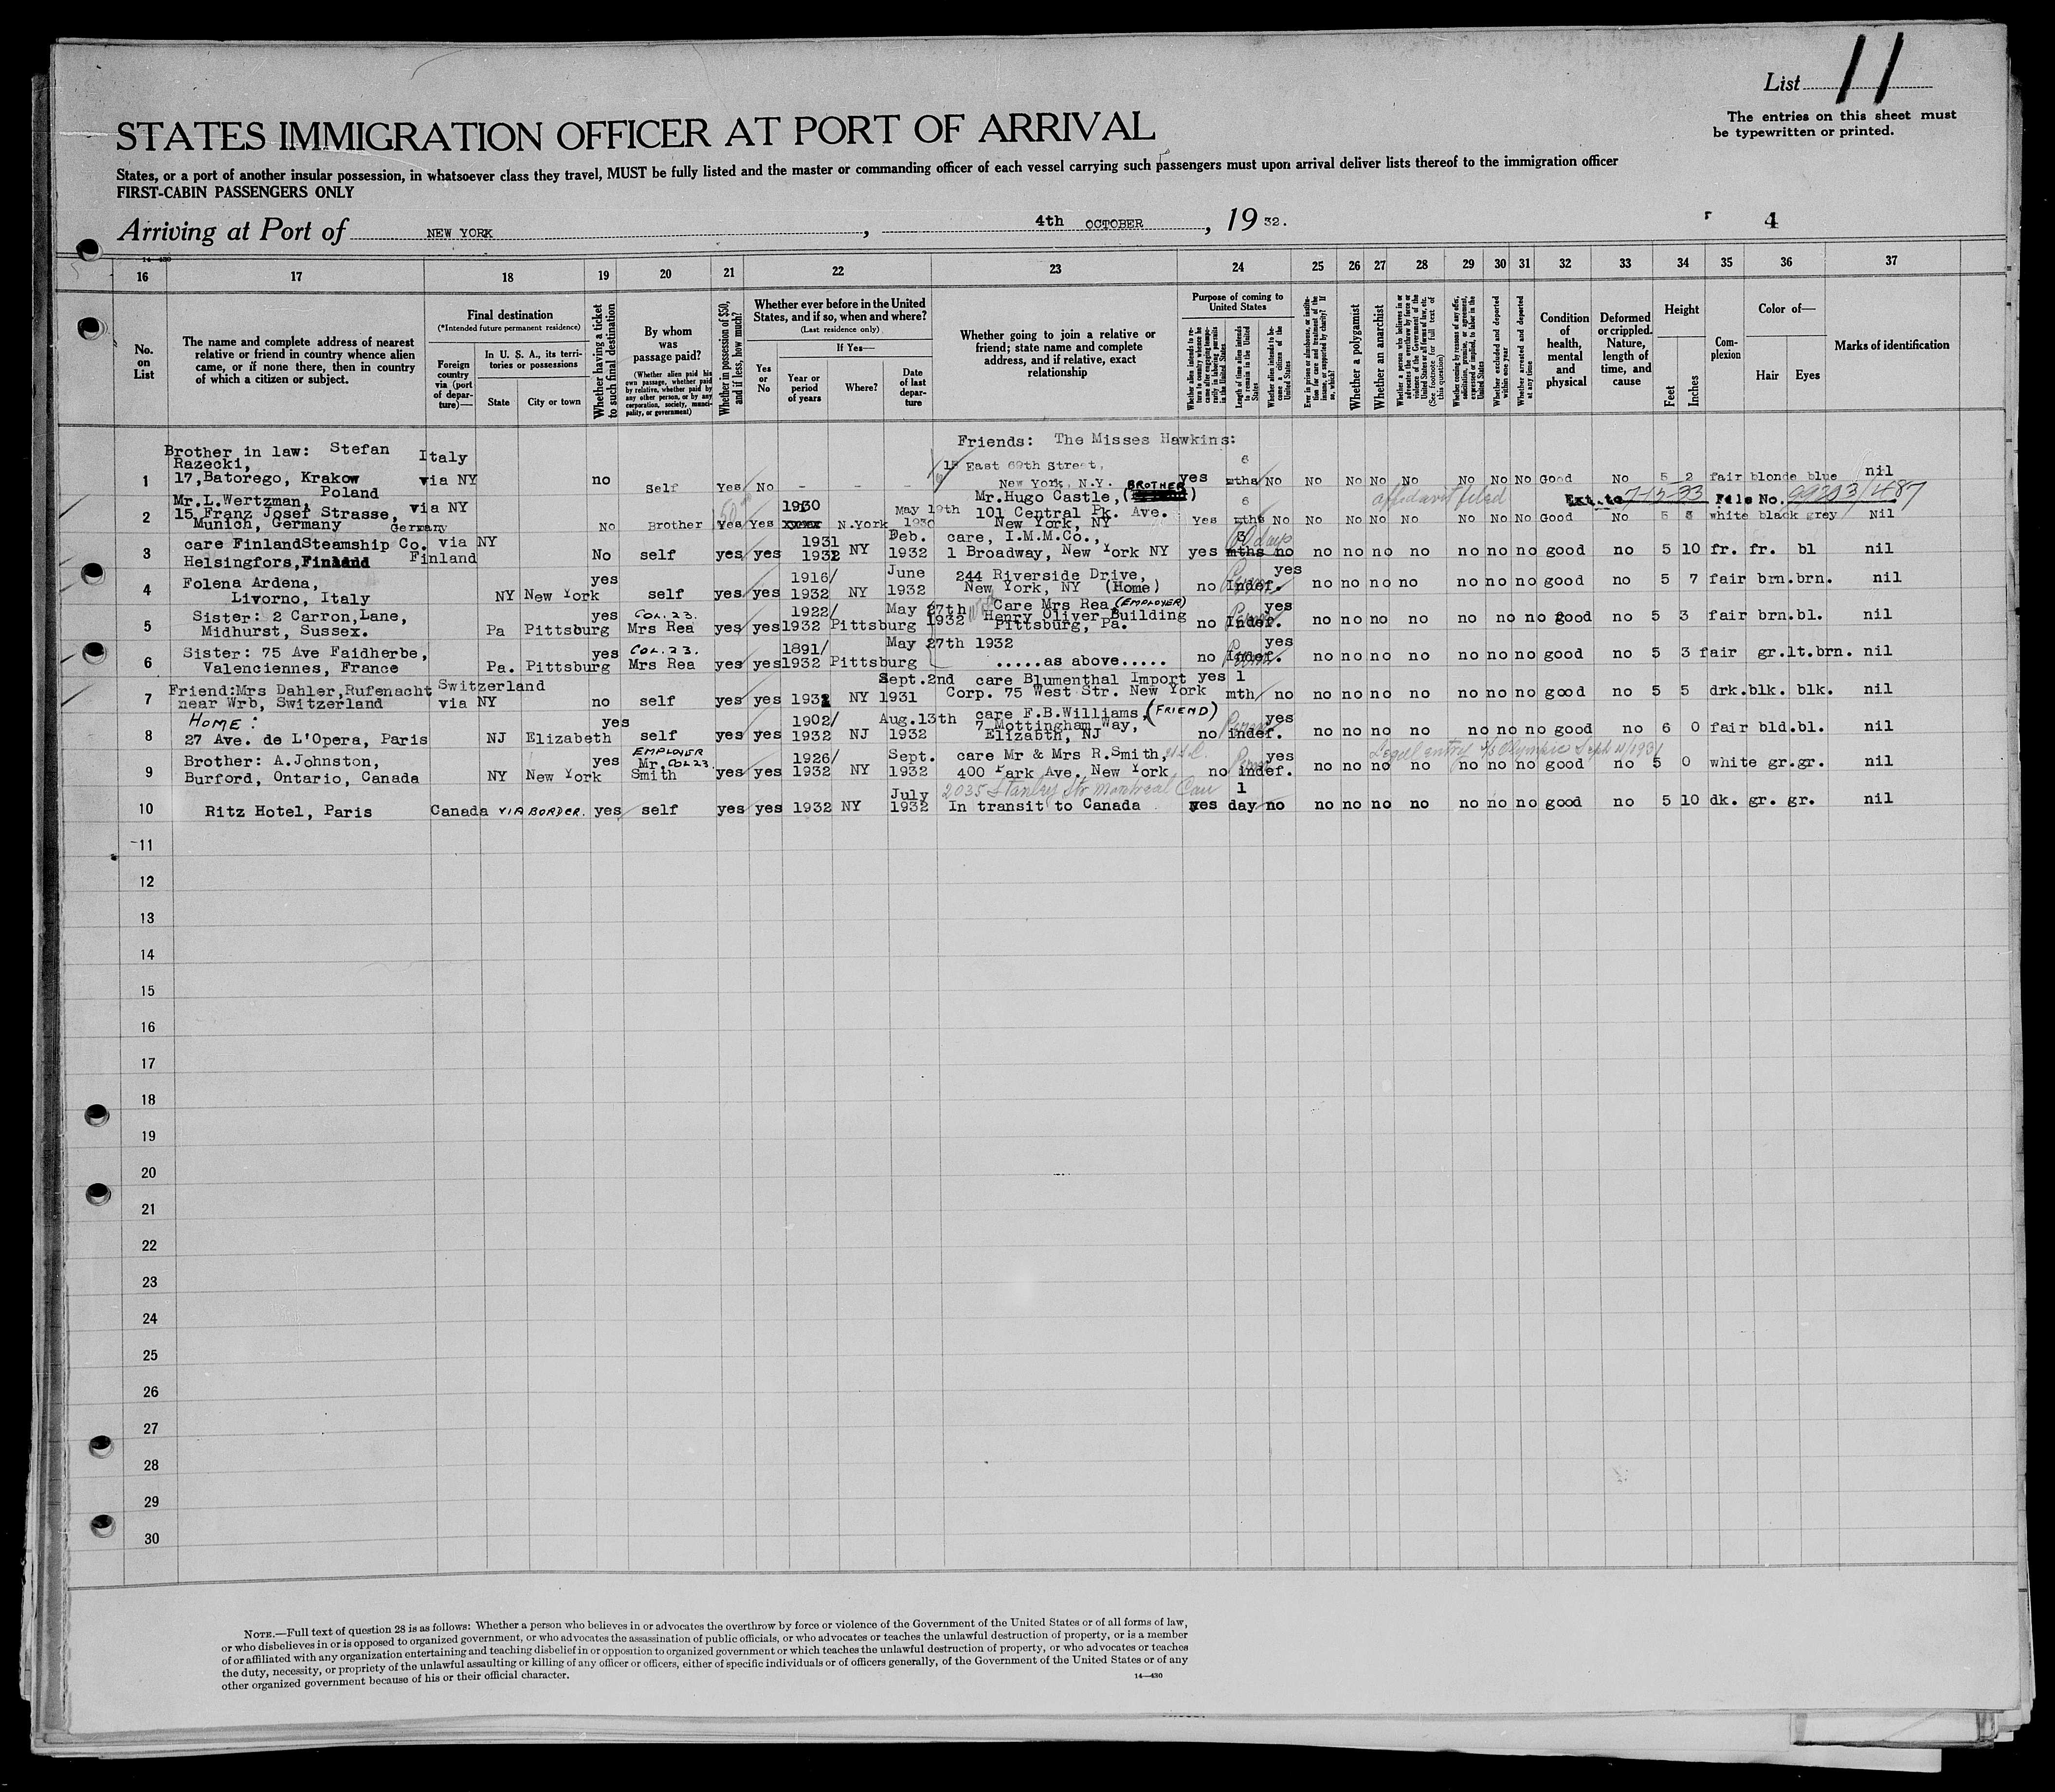 List 11
The entries on this sheet must
be typewritten or printed.
STATES IMMIGRATION OFFICER AT PORT OF ARRIVAL
States, or a port of another insular possession, in whatsoever class they travel, MUST be fully listed and the master or commanding officer of each vessel carrying such passengers must upon arrival deliver lists thereof to the immigration officer
FIRST-CABIN PASSENGERS ONLY
Arriving at Port of NEW YORK, 4th OCTOBER, 1932.
4
14-430
16 17 18 19 20 21 22 23 24 25 26 27 28 29 30 31 32 33 34 35 36 37
No. on List
The name and complete address of nearest relative or friend in country whence alien came, or if none there, then in country of which a citizen or subject.
Final destination
(*Intended future permanent residence)
Foreign country via (port of departure)—
In U. S. A., its territories or possessions
State
City or town
Whether having a ticket to such final destination
By whom was passage paid?
(Whether alien paid his own passage, whether paid by relative, whether paid by any other person, or by any corporation, society, municipality, or government)
Whether in possession of $50, and if less, how much?
Whether ever before in the United States, and if so, when and where?
(Last residence only)
Yes or No
If Yes—
Year or period of years
Where?
Date of last departure
Whether going to join a relative or friend; state name and complete address, and if relative, exact relationship
Purpose of coming to United States
Whether alien intends to return to country whence he came after engaging temporarily in laboring pursuits in the United States
Length of time alien intends to remain in the United States
Whether alien intends to become a citizen of the United States
Ever in prison or almshouse, or institution for care and treatment of the insane, or supported by charity? If so, which?
Whether a polygamist
Whether an anarchist
Whether a person who believes in or advocates the overthrow by force or violence of the Government of the United States or of all forms of law, etc. (See footnote for full text of this question)
Whether coming by reason of any offer, solicitation, promise, or agreement, expressed or implied, to labor in the United States
Whether excluded and deported within one year
Whether arrested and deported at any time
Condition of health, mental and physical
Deformed or crippled. Nature, length of time, and cause
Height
Feet
Inches
Complexion
Color of—
Hair
Eyes
Marks of identification
Friends: The Misses Hawkins:
Brother in law: Stefan Italy
Razecki, 15 East 69th Street, 6
1 17,Batorego, Krakow via NY no Self Yes No - - - New York, N.Y. yes mths No No No No No No No No Good No 5 2 fair blonde blue nil
Poland BROTHER
Mr.L.Wertzman, via NY 1930 Mr.Hugo Castle, 6 affidavit filed Ext. to 7-15-33 File No. 99303/487
15 Franz Josef Strasse, May 19th 101 Central Pk. Ave.
2 Munich, Germany Germany No Brother Yes Yes N.York 1930 New York, NY Yes mths No No No No No No No No Good No 5 white black grey Nil
care FinlandSteamship Co. via NY 1931 Feb. care, I.M.M.Co., 3 60 days
3 Helsingfors,Finland Finland No self yes yes 1932 NY 1932 1 Broadway, New York NY yes mths no no no no no no no no good no 5 10 fr. fr. bl nil
Folena Ardena, yes 1916/ June 244 Riverside Drive, yes
4 Livorno, Italy NY New York self yes yes 1932 NY 1932 New York, NY (Home) no Indef. no no no no no no no good no 5 7 fair brn.brn. nil
Sister: 2 Carron,Lane, yes COL.23. 1922/ May 27th Care Mrs Rea (EMPLOYER) yes
5 Midhurst, Sussex. Pa Pittsburg Mrs Rea yes yes 1932 Pittsburg 1932 Henry Oliver Building Pittsburg, Pa. no Indef. no no no no no no no good no 5 3 fair brn.bl. nil
Sister: 75 Ave Faidherbe, yes COL.23. 1891/ May 27th 1932 yes
6 Valenciennes, France Pa. Pittsburg Mrs Rea yes yes 1932 Pittsburg .....as above..... no Indef. no no no no no no no good no 5 3 fair gr.lt.brn. nil
Friend:Mrs Dahler,Rufenacht Switzerland Sept.2nd care Blumenthal Import yes 1
7 near Wrb, Switzerland via NY no self yes yes 1931 NY 1931 Corp. 75 West Str. New York mth no no no no no no no no good no 5 5 drk.blk. blk. nil
HOME: yes 1902/ Aug.13th care F.B.Williams, (FRIEND) yes
8 27 Ave. de L'Opera, Paris NJ Elizabeth self yes yes 1932 NJ 1932 7 Mottingham Way, Elizabth, NJ no indef. no no no no no no no good no 6 0 fair bld.bl. nil
Brother: A.Johnston, yes EMPLOYER Mr. COL23. 1926/ Sept. care Mr & Mrs R.Smith, yes Legal entry S/S Olympic Sept
9 Burford, Ontario, Canada NY New York Smith yes yes 1932 NY 1932 400 Park Ave. New York no indef. no no no no no no no good no 5 0 white gr.gr. nil
July 2035 Stanley Str Montreal Can 1
10 Ritz Hotel, Paris Canada VIA BORDER. yes self yes yes 1932 NY 1932 In transit to Canada yes day no no no no no no no no good no 5 10 dk. gr. gr. nil
11
12
13
14
15
16
17
18
19
20
21
22
23
24
25
26
27
28
29
30
NOTE.—Full text of question 28 is as follows: Whether a person who believes in or advocates the overthrow by force or violence of the Government of the United States or of all forms of law,
or who disbelieves in or is opposed to organized government, or who advocates the assassination of public officials, or who advocates or teaches the unlawful destruction of property, or is a member
of or affiliated with any organization entertaining and teaching disbelief in or opposition to organized government or which teaches the unlawful destruction of property, or who advocates or teaches
the duty, necessity, or propriety of the unlawful assaulting or killing of any officer or officers, either of specific individuals or of officers generally, of the Government of the United States or of any
other organized government because of his or their official character.
14—430